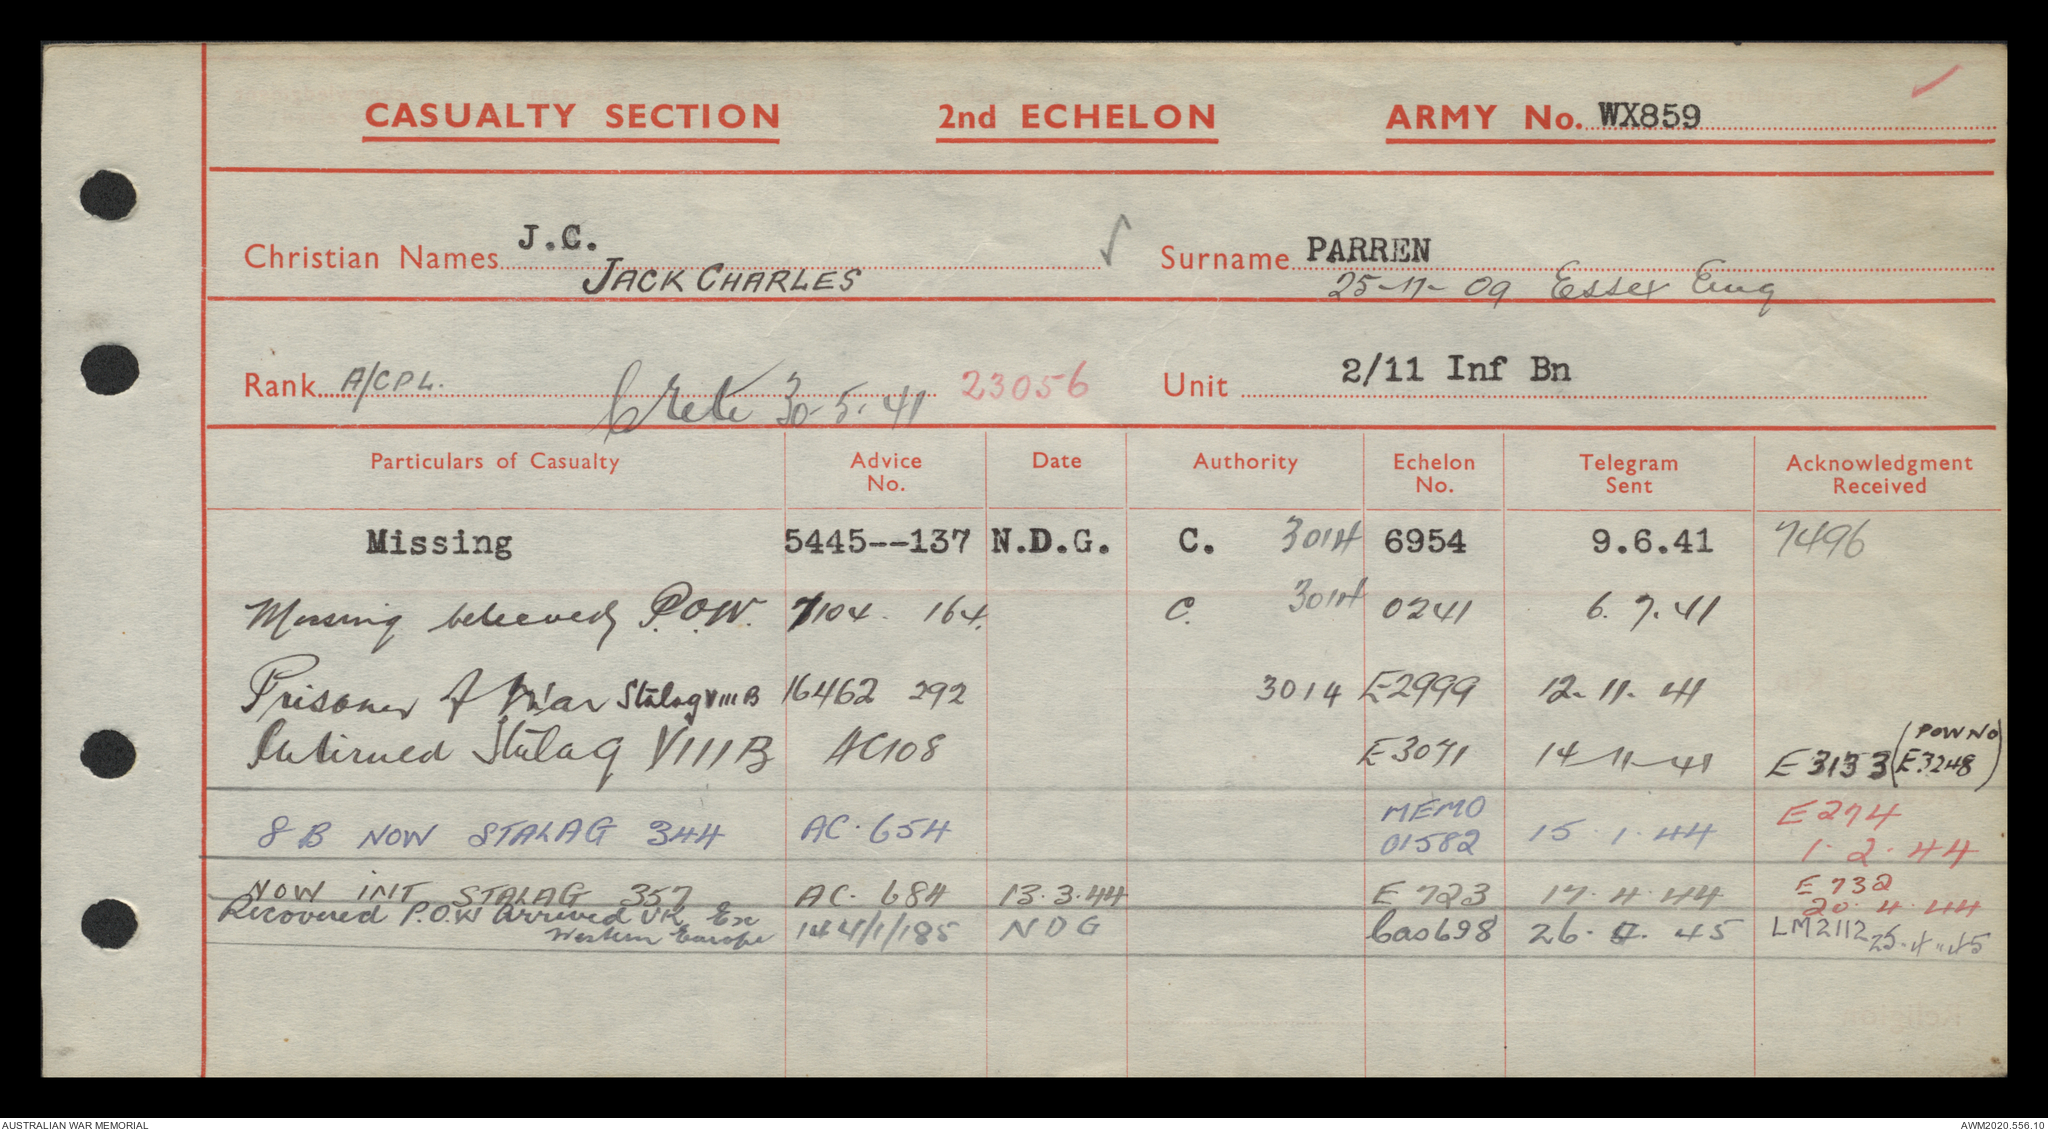 CASUALTY SECTION 2nd ECHELON ARMY No. WX859
Christian Names J.C. Surname PARREN
JACK CHARLES 25-11-09 Essex Eng
Rank A/CPL. Crete 30-5-41 23056 Unit 2/11 Inf Bn
Particulars of Casualty Advice No. Date Authority Echelon No. Telegram Sent Acknowledgment Received
Missing 5445--137 N.D.G. C. 3014 6954 9.6.41 7496
Missing believed P.O.W. 7104 164. C. 3014 0241 6.7.41
Prisoner of War Stalag VIII B 16462 292 3014 E2999 12-11-41
Interned Stalag VIII B AC108 E3071 14-11-41 E3133 (POW NO E3248)
8 B NOW STALAG 344 AC. 654 MEMO 01582 15.1.44 E274 1.2.44
NOW INT STALAG 357 AC. 684 13.3.44 E 723 17.4.44 E 732 20.4.44
Recovered P.O.W Arrived UK Ex 144/1/185 NDG Cas698 26.4.45 LM2112 25.4.45
Western Europe
AUSTRALIAN WAR MEMORIAL AWM2020.556.10